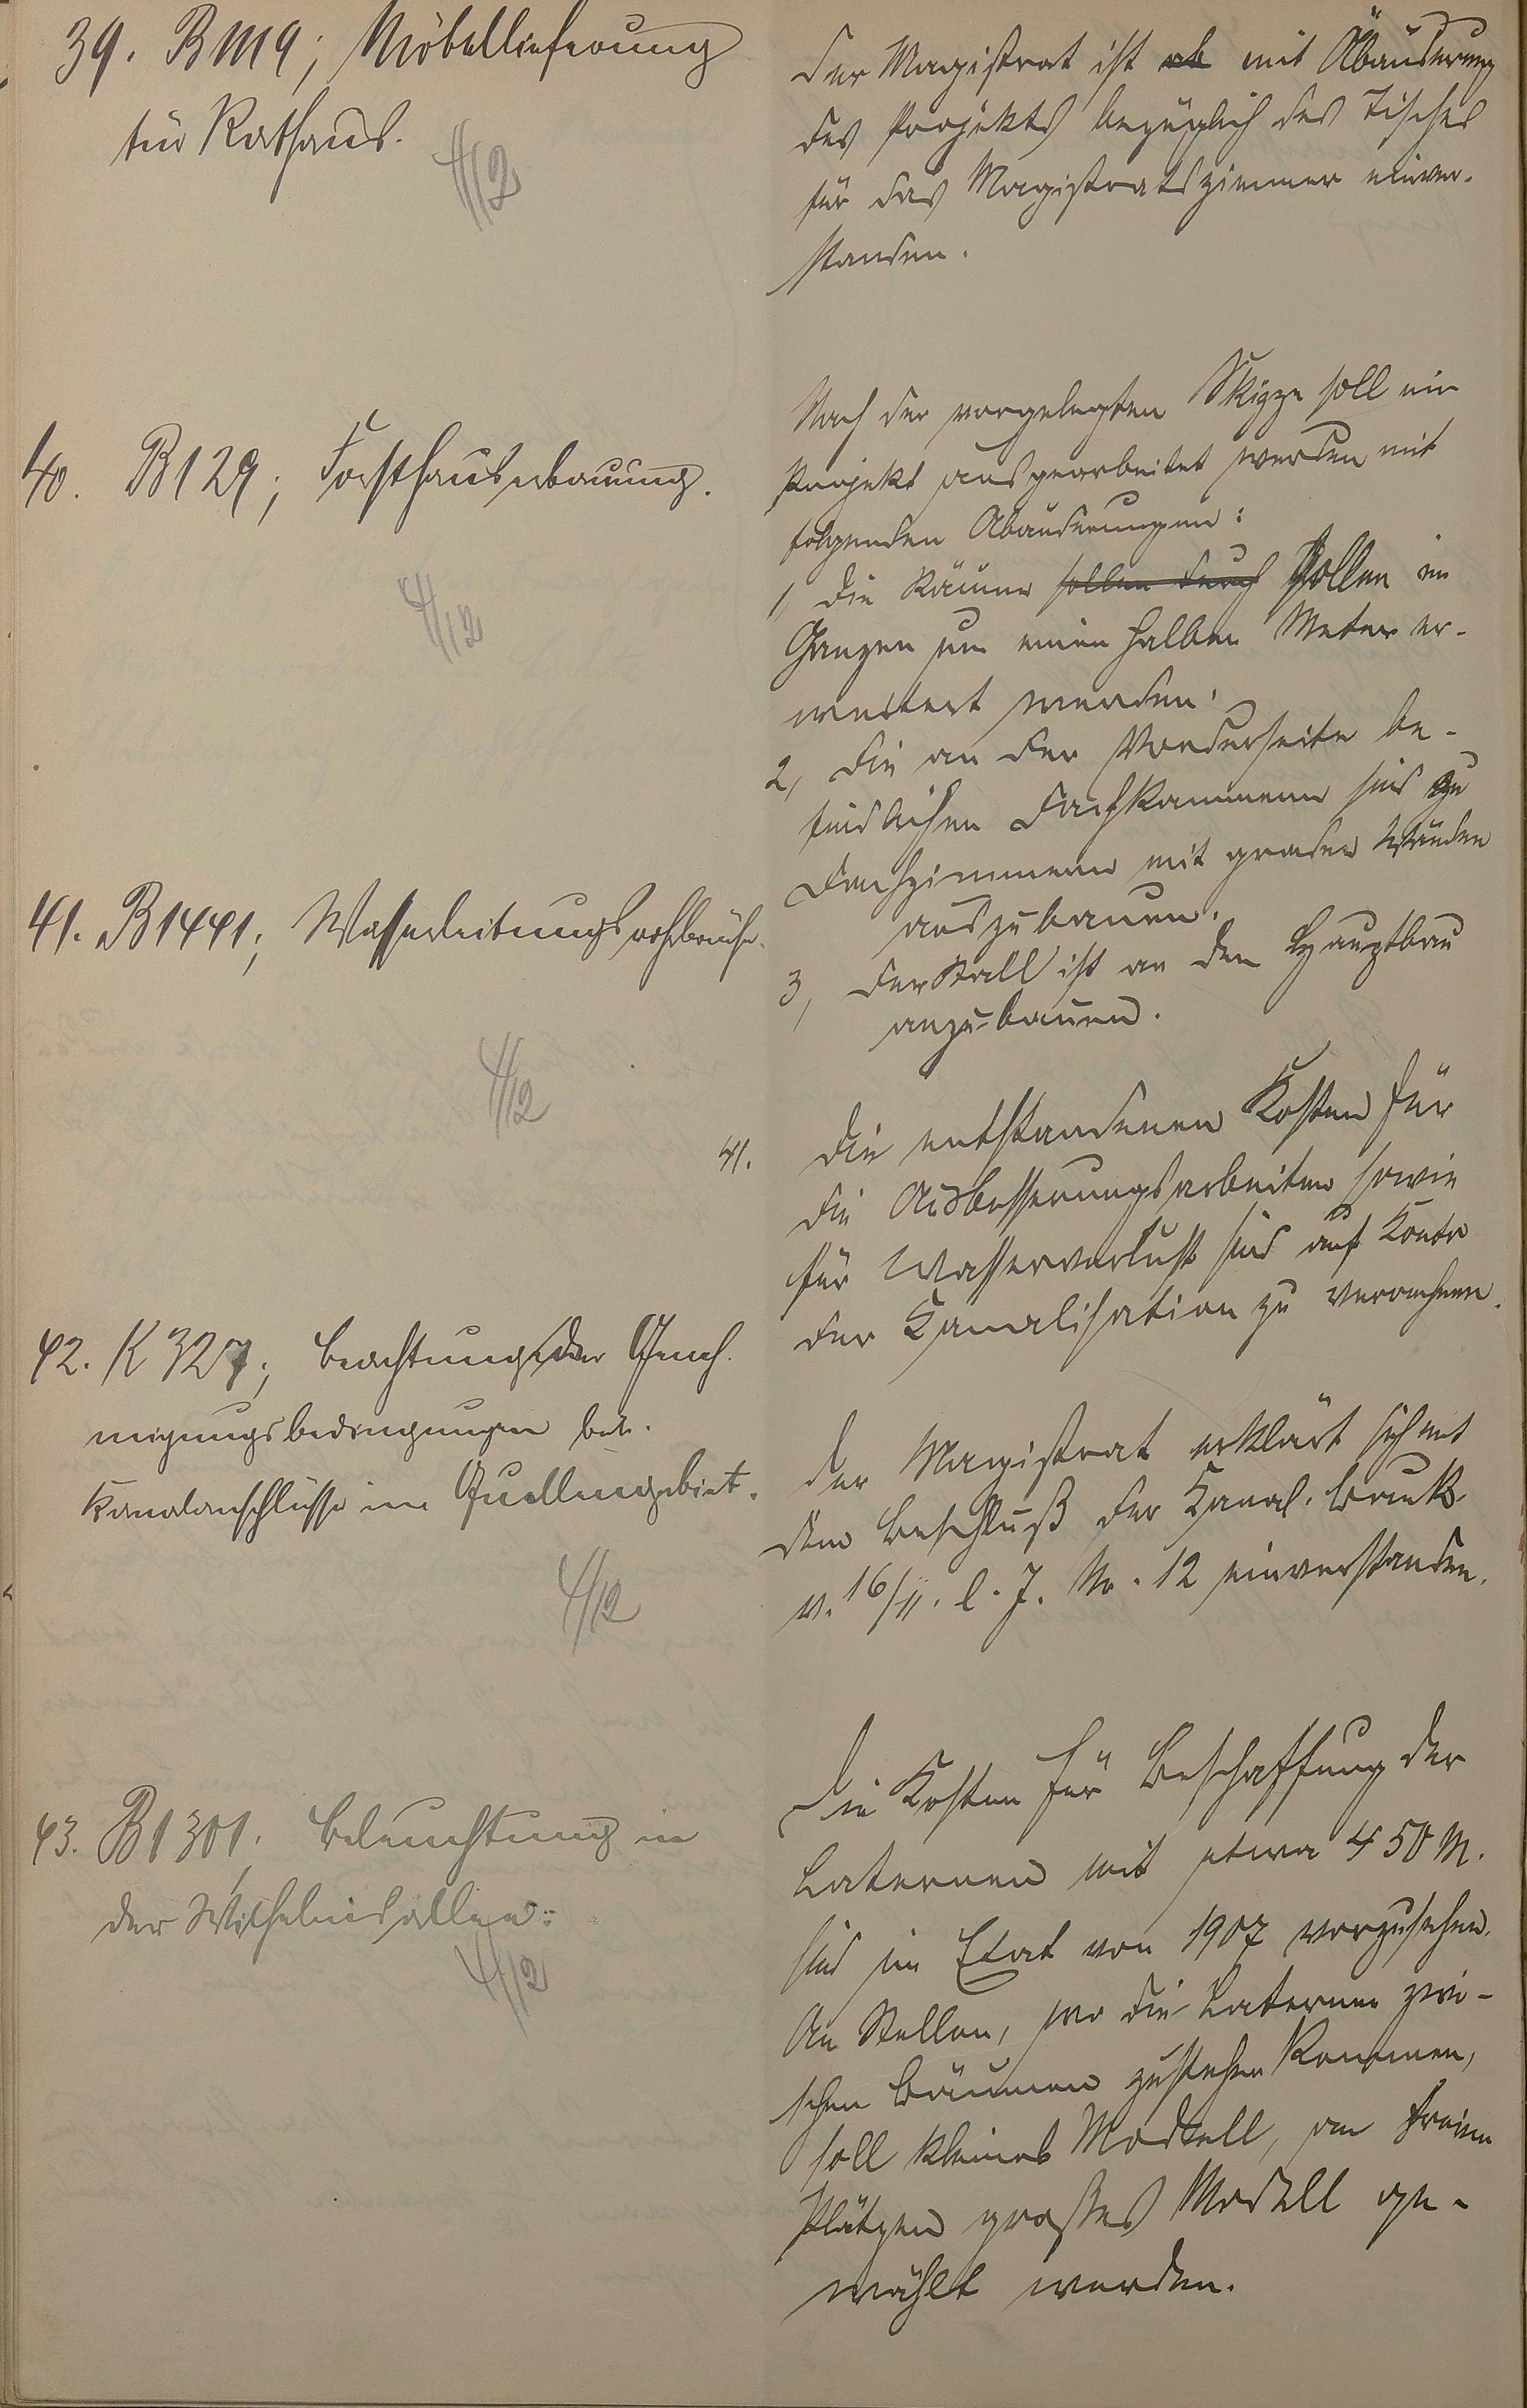 39. B 1119; Möbellieferung
für Rathaus.
4/12
Der Magistrat ist ab mit Abänderung
des Projekts bezüglich des Tisches
für das Magistratszimmer einver-
standen.
40. B 129; Forsthauserbauung.
4/12
Nach der vorgelegten Skizze soll ein
Projekt ausgearbeitet werden mit
folgenden Abänderungen:
1, die Räume sollen durch sollen im
Ganzen um einen halben Meter er-
weitert werden.
2, die an der Vorderseite be-
findlichen Dachkammern sind zu
Dachzimmern mit graden Wänden
auszubauen.
3, der Stall ist an den Hauptbau
anzubauen.
41. B 1441; Wasserleitungsrohrbrüche.
4/12
41. Die entstandenen Kosten für
die Ausbesserungsarbeiten sowie
für Wasserverlust sind auf Konto
der Kanalisation zu verrechnen.
42. K 327; Beachtung der Geneh-
migungsbedingungen betr.
Kanalanschlüsse im Quellengebiet.
4/12
Der Magistrat erklärt sich mit
dem Beschluß der Kanal. Bauk.
v. 16/11. l. J. No. 12 einverstanden.
43. B 1301; Beleuchtung in
der Wilhelmsallee.
4/12
Die Kosten für Beschaffung der
Laternen mit etwa 450 M.
sind im Etat von 1907 vorzusehen.
An Stellen, wo die Laternen zwi-
schen Bäumen zustehen kommen,
soll kleines Modell, an freien
Plätzen großes Modell ge-
wählt werden.